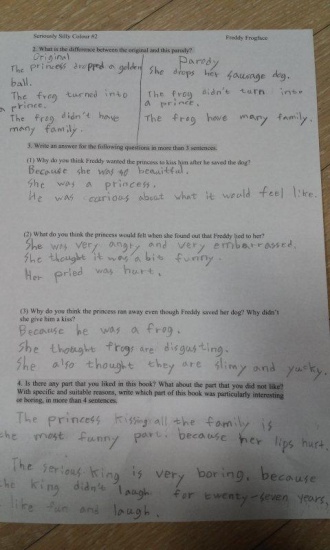 Seriously Silly Colour #2 Freddy Frogface
2. What is the difference between the original and this parody?
Original
The princess dropped a golden
ball.
The frog turned into
a prince.
The frog didn't have
many family.
Parody
She drops her sausage dog.
The frog didn't turn into
a prince.
The frog have many family.
3. Write an answer for the following questions in more than 3 sentences.
(1) Why do you think Freddy wanted the princess to kiss him after he saved the dog?
Because she was so beauitful.
She was a princess.
He was carious about what it would feel like.
(2) What do you think the princess would felt when she found out that Freddy lied to her?
She was very angry and very embarrassed.
She thought it was a bit funny.
Her pried was hurt.
(3) Why do you think the princess ran away even though Freddy saved her dog? Why didn't
she give him a kiss?
Because he was a frog.
She thought frogs are disgusting.
She also thought they are slimy and yucky.
4. Is there any part that you liked in this book? What about the part that you did not like?
With specific and suitable reasons, write which part of this book was particularly interesting
or boring, in more than 4 sentences.
The princess kissing all the family is
the most funny part. because her lips hurt.
The serious king is very boring, because
the king didn't laugh for twenty-seven years,
like fun and laugh.